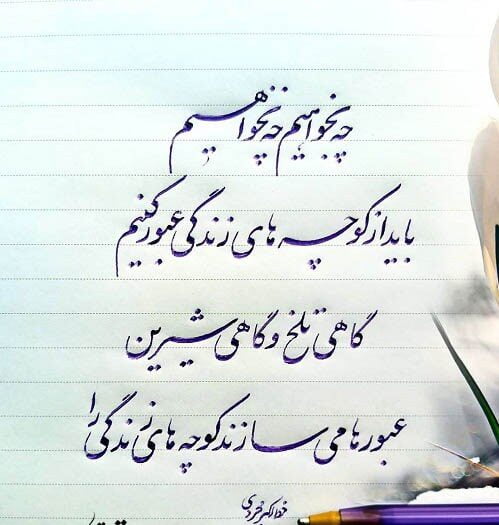 چه بخواهیم چه نخواهیم
باید از کوچه های زندگی عبور کنیم
گاهی تلخ و گاهی شیرین
عبورها می سازند کوچه های زندگی را